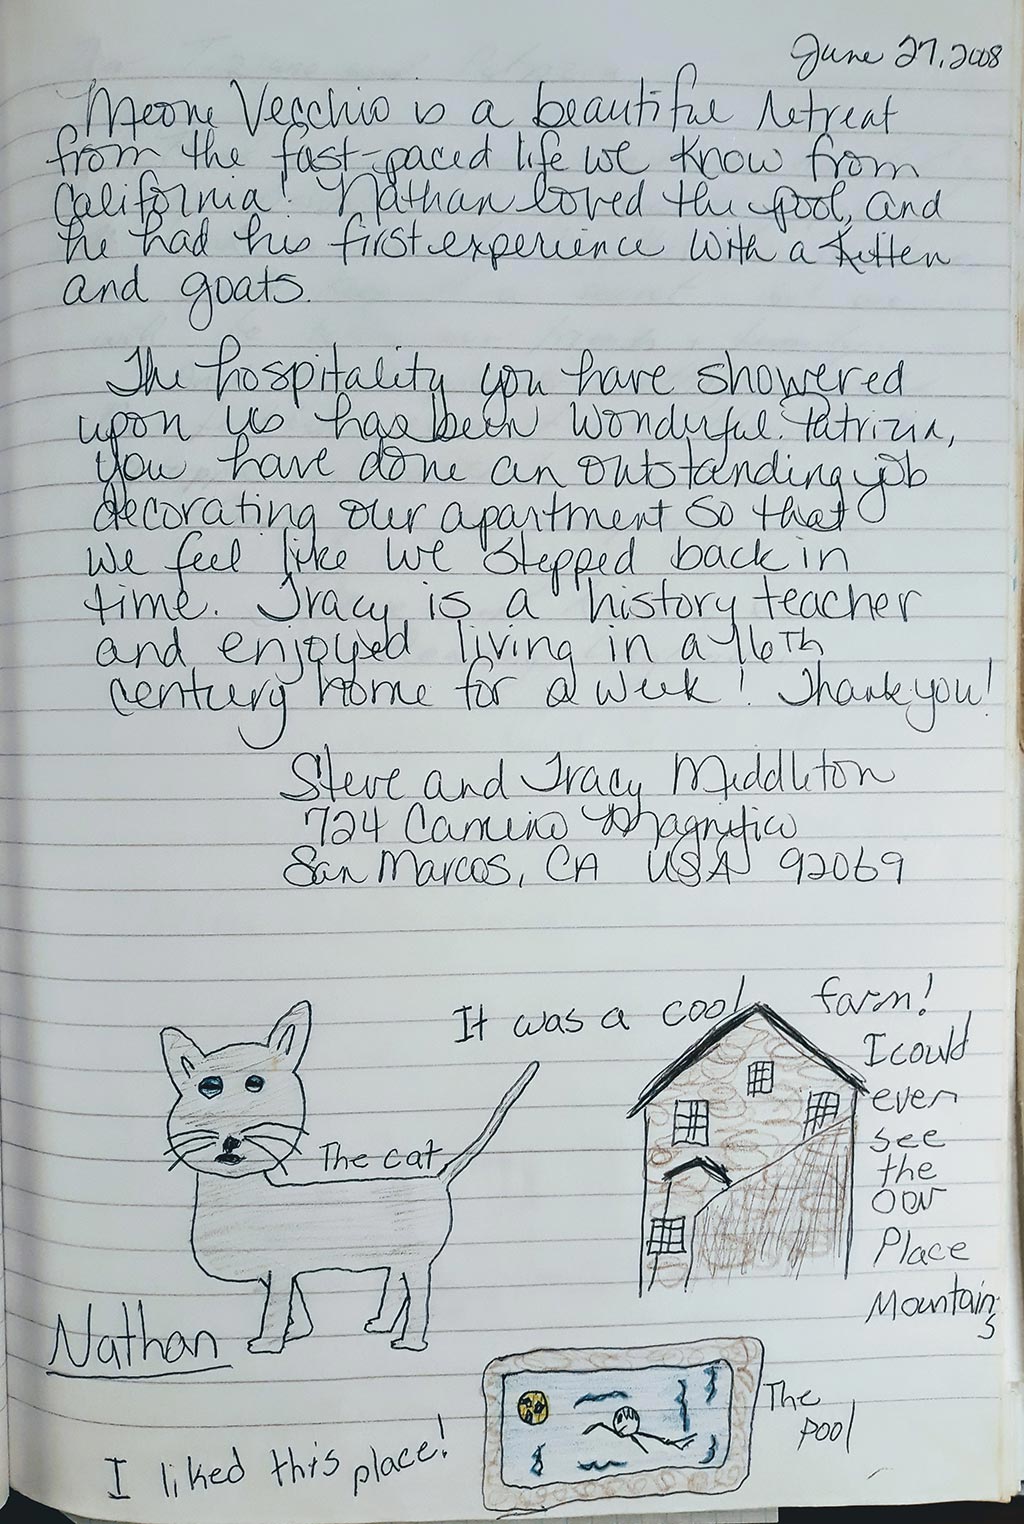 June 27, 2008
Meone Vecchio is a beautiful retreat
from the fast-paced life we know from
California! Nathan loved the pool, and
he had his first experience with a kitten
and goats.
The hospitality you have showered
upon us has been wonderful. Patrizia,
you have done an outstanding job
decorating our apartment so that
we feel like we stepped back in
time. Tracy is a history teacher
and enjoyed living in a 16th
century home for a week! Thank you!
Steve and Tracy Middleton
724 Camino Magnifico
San Marcos, CA USA 92069
It was a cool farm!
I could
even
see
the
our
Place
Mountains
The cat
Nathan
The
pool
I liked this place!